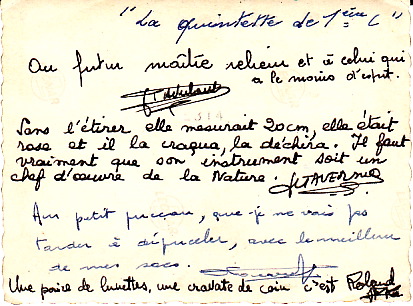 "La quintette de 1ère C"
Au futur maître relieur et à celui qui
a le moins d'esprit.
Sans l'étirer elle mesurait 20cm, elle était
rose et il la craqua, la déchira. Il faut
vraiment que son instrument soit un
chef d'œuvre de la Nature. TAVERNIER
Au petit puceau, que je ne vais pas
tarder à dépuceler, avec le meilleur
de mes
Une paire de lunettes, une cravate de coin c'est Roland